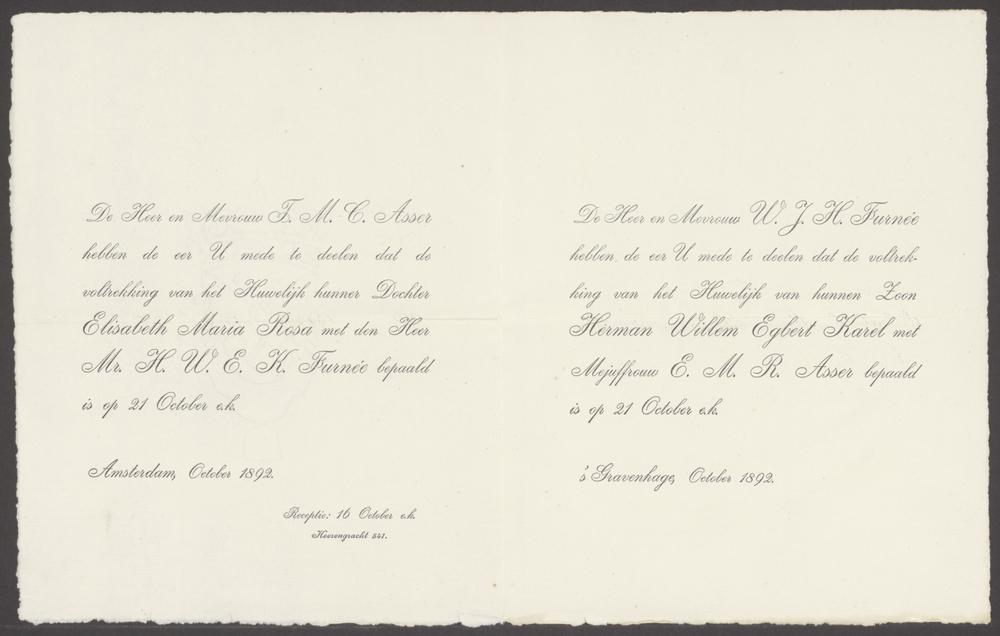 De Heer en Mevrouw T. M. C. Asser
hebben de eer U mede te deelen dat de
voltrekking van het Huwelijk hunner Dochter
Elisabeth Maria Rosa met den Heer
Mr. H. W. E. K. Furnée bepaald
is op 21 October e.k.
Amsterdam, October 1892.
Receptie: 16 October e.k.
Heerengracht 541.
De Heer en Mevrouw W. J. H. Furnée
hebben de eer U mede te deelen dat de voltrek-
king van het Huwelijk van hunnen Zoon
Herman Willem Egbert Karel met
Mejuffrouw E. M. R. Asser bepaald
is op 21 October e.k.
's Gravenhage, October 1892.